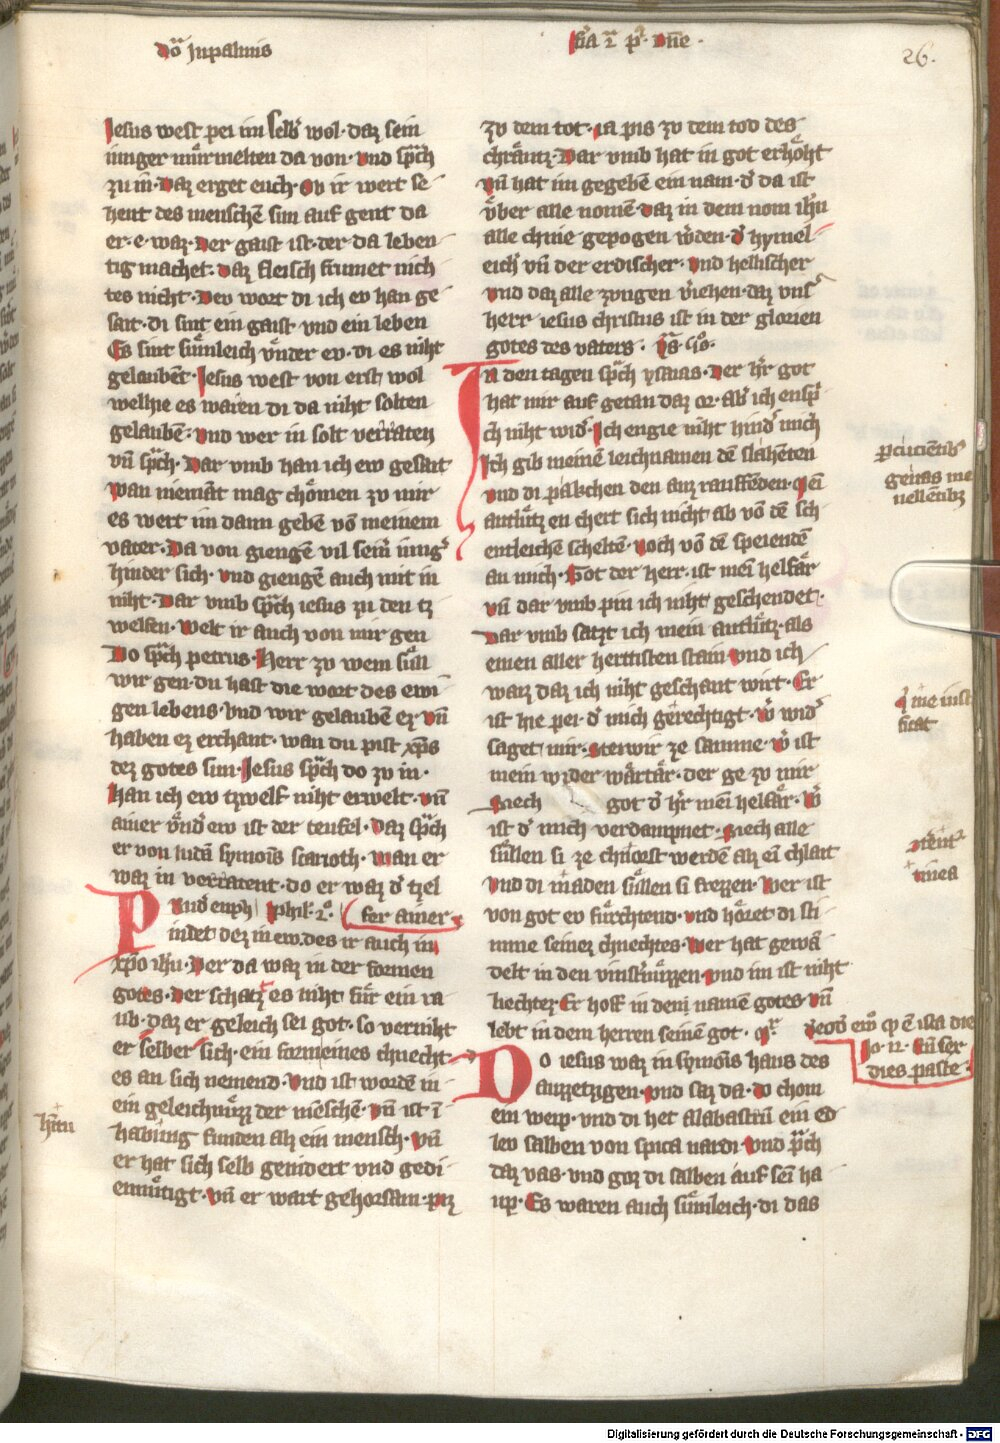 Jesus west pei im selb wol·daz sein
iunger mu᷑rmelten da von·vnd sp̃ch
zu in·Daz erget euch·Ob ir wert se-
hent des menschẽ sun auf gent da
er·e waz·Der gaist ist·der da leben-
tig machet·daz fleisch frumet nich-
tes nicht·Dev wort di ich ev han ge-
sait·di sint ein gaist vnd ein leben
Es sint sümleich vnder ev·di es niht
gelaubẽt·Jesus west von erst wol
welhie es waren di da niht solten
gelaubẽ·vnd wer in solt verraten
vñ sp̃ch·Dar vmb han ich ew gesait
wan niemãt mag chömen zv mir
es wert im dann gebẽ võ meinem
vater·Da von giengẽ vil seiñ iung᷑
hinder sich·vnd giengẽ auch mit in
niht·Dar vmb sp̃ch iesus zu den tz
welfen·Welt ir auch von mir gen
Do sp̃ch petrus·Herr zv wem sull
wir gen·du hast die wort des ewi-
gen lebens·Vnd wir gelaubẽ ez vñ
haben ez erchant·wan du pist xp̃s
dez gotes sun·Jesus sp̃ch do zv in·
Han ich ew tzwelf niht erwelt·vñ
ainer vnd᷑ ew ist der teufel·Daz sp̃ch
er von iudã symonis scarioth·wan er
waz in verratent·do er waz d᷑ tzel
fer ainer
indet dez in ew·des ir auch in
xp̃o ih̃u·Der da waz in der formen
gotes·der schatz es niht für ein ra-
ub·daz er geleich sei got·so verniht
er selber sich·ein form eines chnecht-
es an sich nemend·Vnd ist wordẽ in-
ein geleichnüzz der mẽschẽ·vñ ist ĩ
habung funden alz ein mensch·vñ
er hat sich selb genidert vnd gedi-
enmütigt·vñ er wart gehorsam·piz
zv dem tot·ia pis zv dem tod des
chräutz·Dar vmb hat in got erhöht
vñ hat im gegebẽ ein nam·d᷑ da ist
vber alle nomẽ daz in dem nom ih̃u
alle chnie gepogen w᷑den·d᷑ hymel-
eich᷑ vñ der erdischer·vnd hellischer
vnd daz alle zvngen v᷑iehen·daz vns᷑
herr iesus christus ist in der glorien
gotes des vaters·
In den tagen sp̃ch ysaias·Der h᷑r got
hat mir auf getan daz or·ab᷑ ich ensp᷑
ch niht wid᷑·Ich engie niht hind᷑ mich
Ich gib meinẽ leichnamen dẽ slahẽten
vnd di päkchen den auz rauffẽden·Mẽi
antlütz en chert sich nicht ab võ dẽ sch
entleichẽ scheltẽ·noch võ dẽ speiendẽ
an mich·Got der herr·ist mei helfär
vñ dar vmb pin ich niht geschendet·
Dar vmb satzt ich mein antlütz·als
einen aller herttisten stain·vnd ich
waiz daz ich niht geschant wirt·Er
ist hie pei·d᷑ mich gerechtigt·w᷑ wid᷑
saget mir·sterwir ze samme·w᷑ ist
mein wider wärtär·der ge zv mir
Siech got d᷑ h᷑r mei helfär·w᷑
ist d᷑ mich verdampnet·Siech alle
süllen si ze chnorst werdẽ alz ei chlait
vnd di maden süllen si frezzen·Wer ist
von got ev fürchtend·vnd höret di sti-
mme seinez chnechtes·Wer hat gewã
delt in den vinsternüzzen·vnd im ist niht
liechtez·Er hoff in dem namẽ gotes vñ
lebt in dem herren seinẽ got·
Do iesus waz in symonis haus des
auzzetzigen·vnd saz da·do chom
ein weip·vnd di het alabastrũ ein ed
lev salben von spica nardi·vnd p̃ch
daz vas·vnd goz di salben auf sei ha
up·Es waren auch sümleich·di das
26.
Digitalisierung gefördert durch die Deutsche Forschungsgemeinschaft - DFG